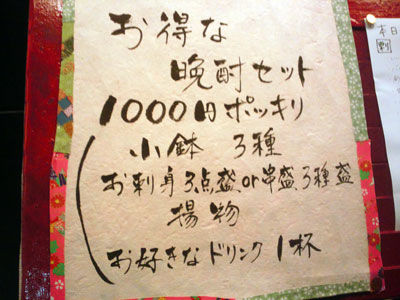 お得な
晩酌セット
1000円ポッキリ
小鉢 3種
お刺身3点盛or串盛3種盛
揚物
お好きなドリンク1杯
本日